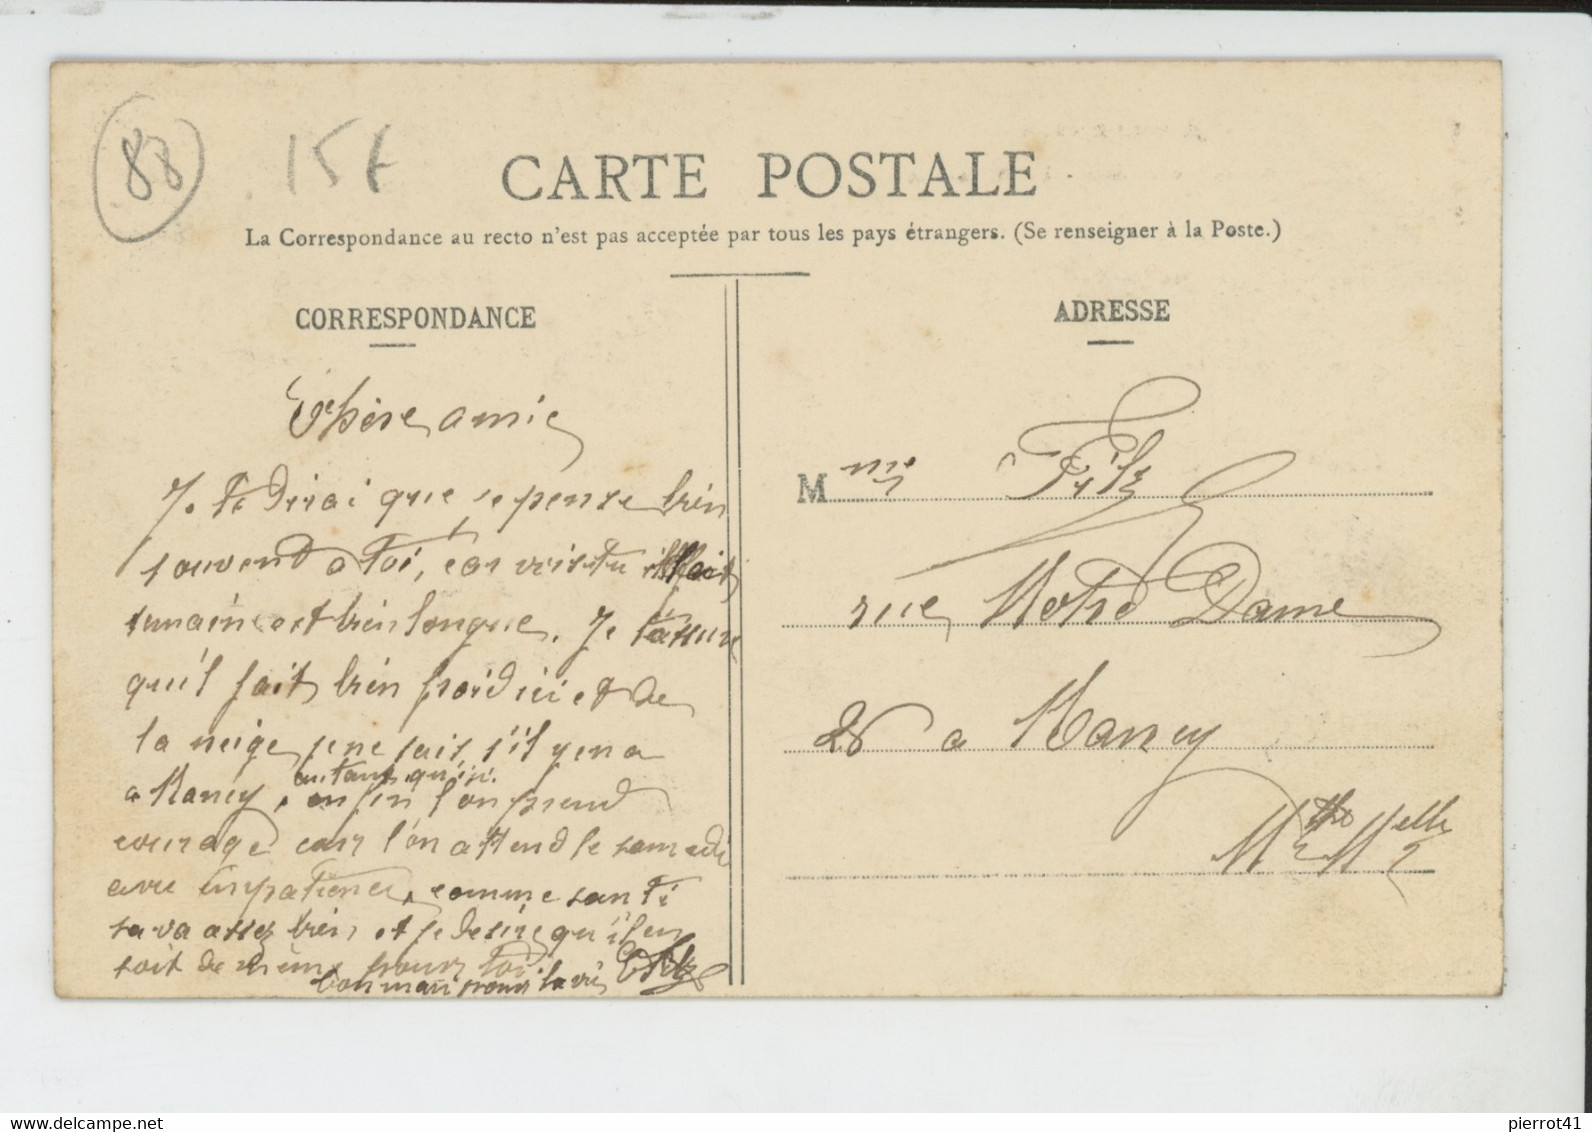 88
15f
CARTE POSTALE
La Correspondance au recto n'est pas acceptée par tous les pays étrangers. (Se renseigner à la Poste.)
CORRESPONDANCE
Chère amie
Je te dirai que je pense bien
souvend a toi, car vois tu
semaine est bien longue. Je t'assure
qu'il fait bien froid ici et de
la neige je ne sais s'il y en a
a Nancy autant qu'ici.
enfin l'on prend
courage car l'on attend le samedi
avec impatience, comme santé
sa va assez bien et je desire qu'il en
soit de même pour toi
ton mari pour la vie Fitz
ADRESSE
M me Fitz
rue Notre Dame
28 a Nancy
Mthe Melle
pierrot41